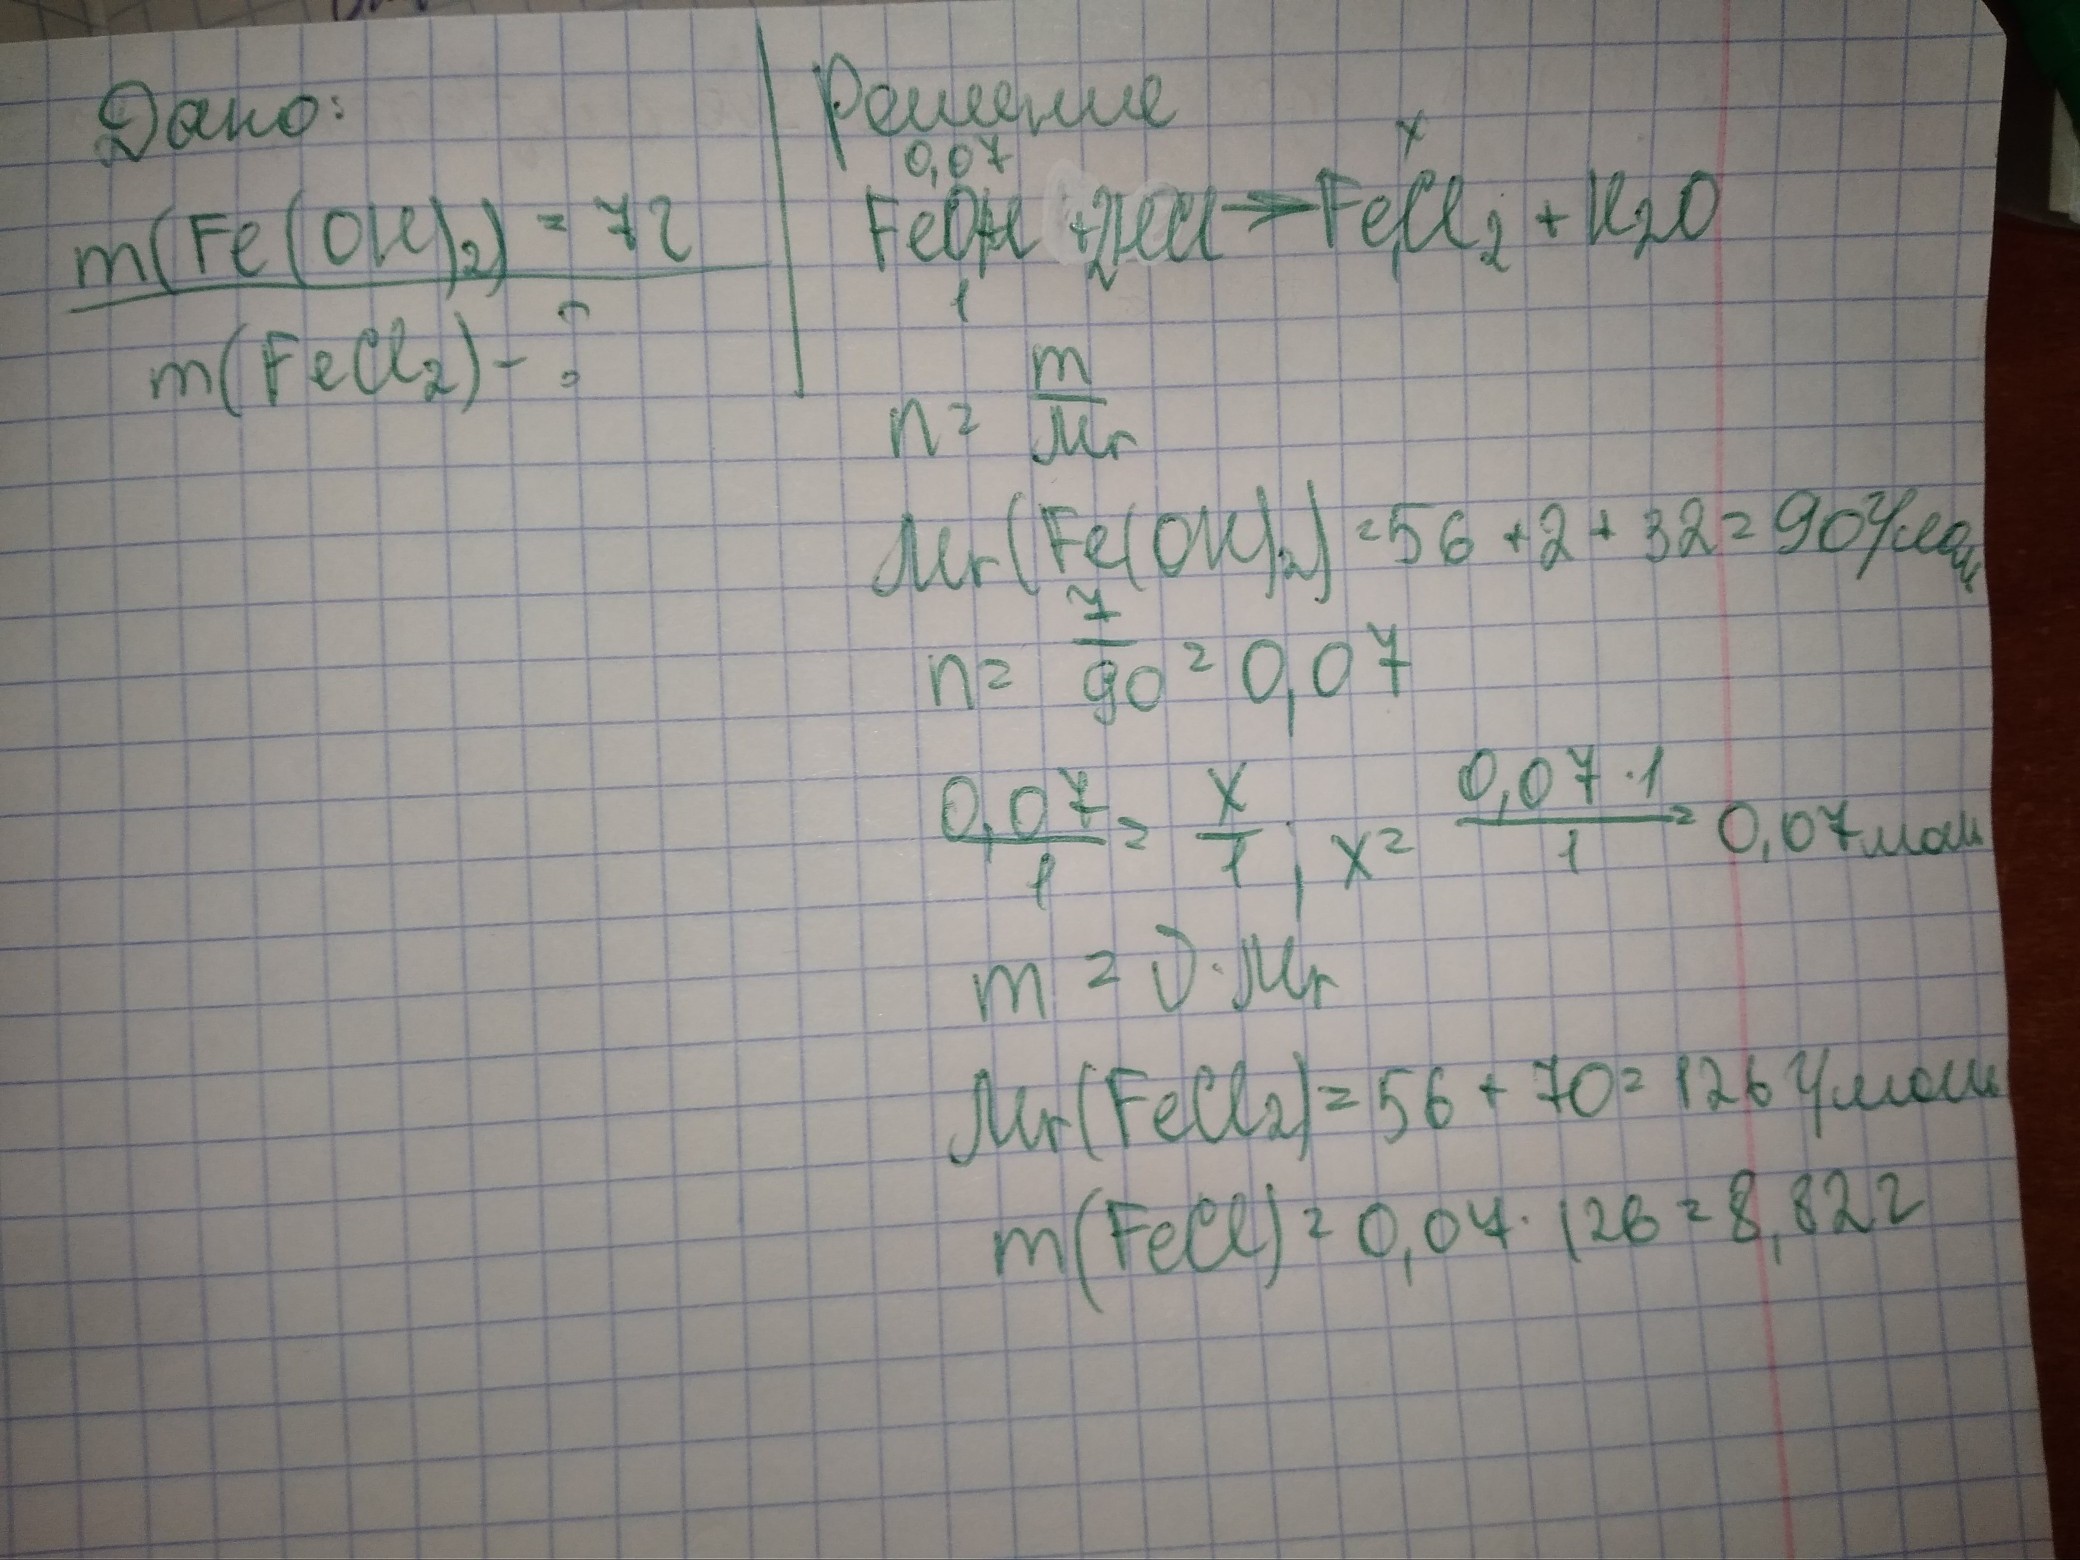 Дано:
m(Fe(OH)₂) = 7г
m(FeCl₂) - ?
Решение
0,07 x
FeOH + 2HCl → FeCl₂ + H₂O
1 1
n = m/Mr
Mr(Fe(OH)₂) = 56 + 2 + 32 = 90 г/моль
n = 7/90 = 0,07
0,07/1 = x/1; x = 0,07·1/1 = 0,07 моль
m = ν·Mr
Mr(FeCl₂) = 56 + 70 = 126 г/моль
m(FeCl) = 0,07·126 = 8,82г